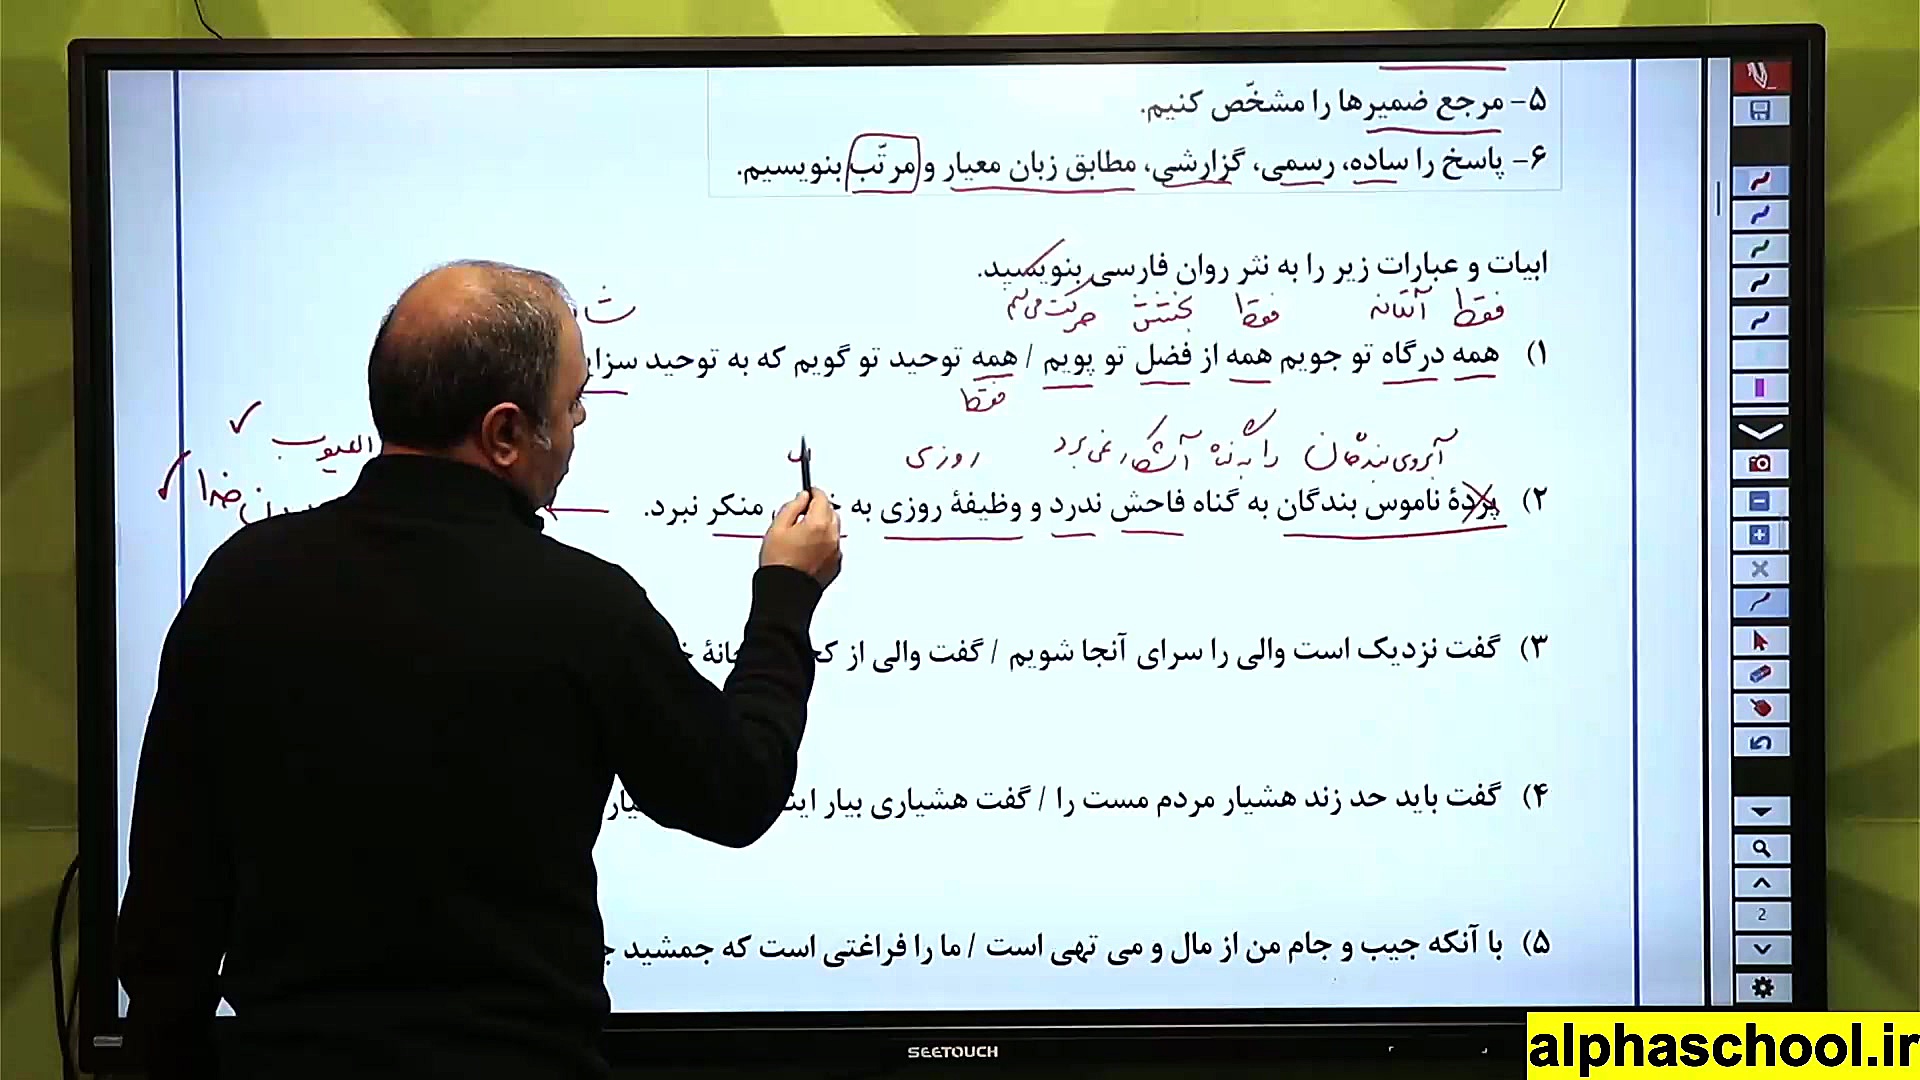 ۵- مرجع ضمیرها را مشخّص کنیم.
۶- پاسخ را ساده، رسمی، گزارشی، مطابق زبان معیار و مرتّب بنویسیم.
ابیات و عبارات زیر را به نثر روان فارسی بنویسید.
فقط آستانه فقط بخشش حرکت می‌کنم
۱) همه درگاه تو جویم همه از فضل تو پویم / همه توحید تو گویم که به توحید
فقط
آبروی بندگان را به گناه آشکار نمی‌برد روزی
العیوب
۲) پردهٔ ناموس بندگان به گناه فاحش ندرد و وظیفهٔ روزی به منکر نبرد.
خدا
۳) گفت نزدیک است والی را سرای آنجا شویم / گفت والی از
۴) گفت باید حد زند هشیار مردم مست را / گفت هشیاری بیار
۵) با آنکه جیب و جام من از مال و می تهی است / ما را فراغتی است که جمشید
SEETOUCH
2
alphaschool.ir